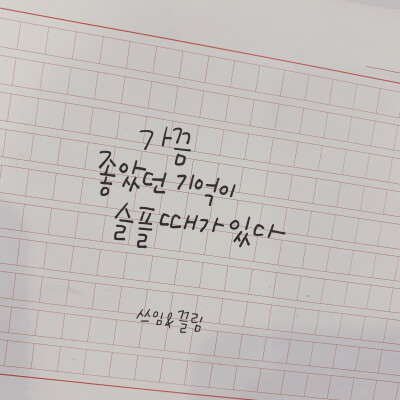 가끔
좋았던 기억이
슬플 때가 있다
쓰임&끌림